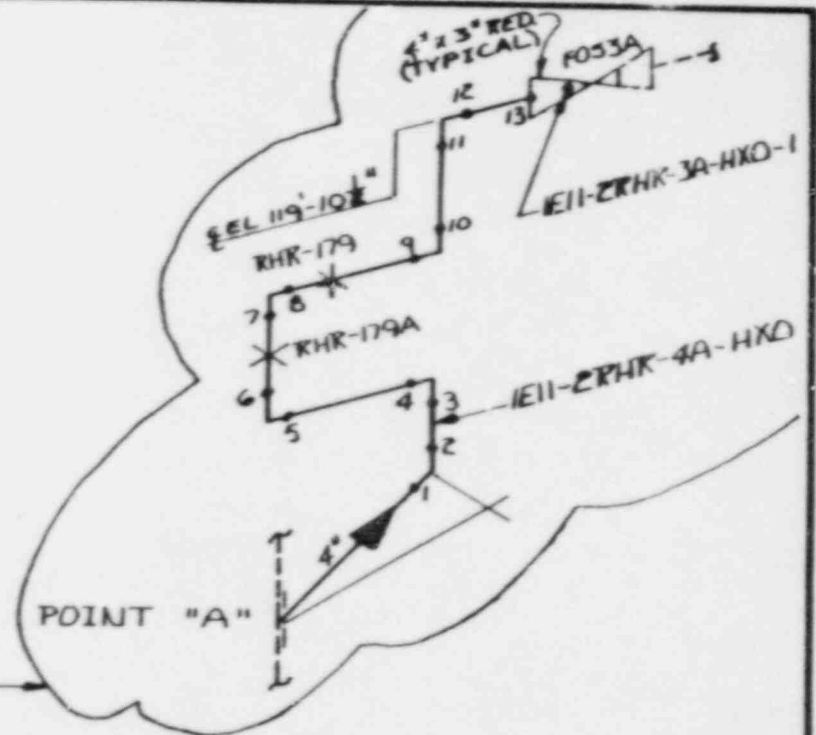 4" x 3" RED.
(TYPICAL)
F053A
12
13
11
1E11-2RHR-3A-HXO-1
℄ EL 119'-10⅛"
10
RHR-179
9
8
7
RHR-179A
1E11-2RHR-4A-HXO
6
4
3
5
2
1
4"
POINT "A"